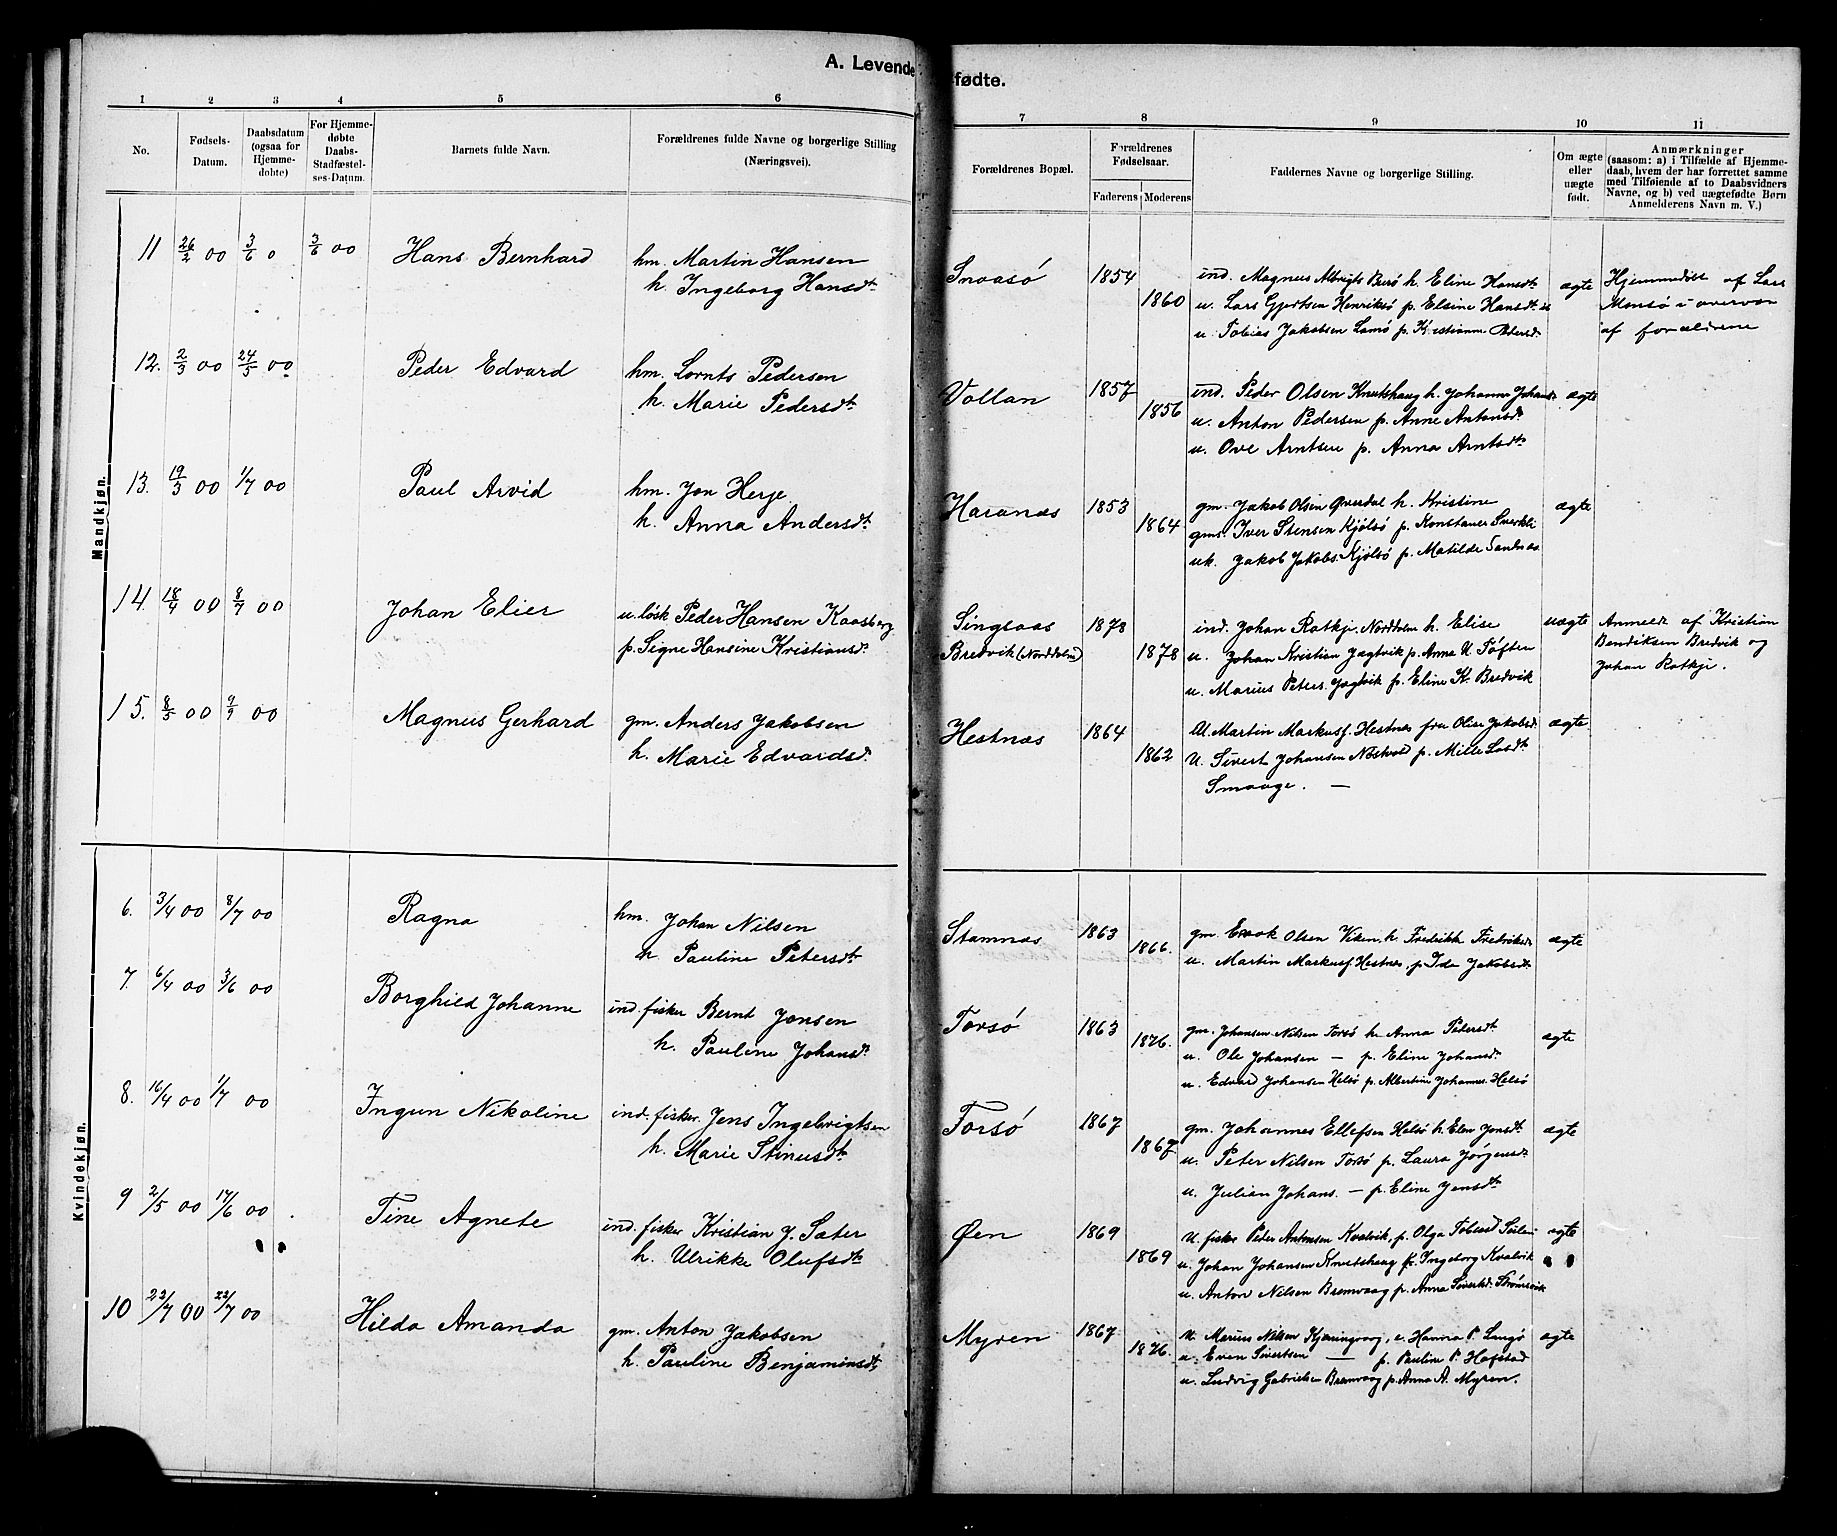 A. Levendefødte.
1 2 3 4 5 6 7 8 9 10 11
No.
Fødsels-Datum.
Daabsdatum (ogsaa for Hjemme-døbte)
For Hjemme-døbte Daabs-Stadfæstel-ses-Datum.
Barnets fulde Navn.
Forældrenes fulde Navne og borgerlige Stilling (Næringsvei).
Forældrenes Bopæl.
Forældrenes Fødselsaar.
Faderens Moderens
Faddernes Navne og borgerlige Stilling.
Om ægte eller uægte født.
Anmærkninger
(saasom: a) i Tilfælde af Hjemme-
daab, hvem der har forrettet samme
med Tilføiende af to Daabsvidners
Navne, og b) ved uægtefødte Børn
Anmelderens Navn m. V.)
Mandkjøn.
11 26/2 00 3/6 0 3/6 00 Hans Bernhard
hm. Martin Hansen
h. Ingeborg Hansdt
Snaasö 1854 1860
ind. Magnus Albrigts Burö h. Eline Hansdt
u. Lars Gjertsen Henriksö p. Elsine Hansdt
u. Tobias Jakobsen Lamö p. Kristianne Petersd.
ægte
Hjemmedöbt af Lars
Monsö i overvær
af forældrene
12. 2/3 00 24/5 00 Peder Edvard
hm. Lornts Pedersen
h. Marie Pedersdt
Vollan 1857 1856
ind. Peder Olsen Knutshaug h. Johanna Johansd.
u. Anton Pedersen p. Anne Antonsdt
u. Ove Arntsen p. Anna Arntsdt
ægte
13. 19/3 00 1/7 00 Paul Arvid
hm. Jon Herje
h. Anna Andersdt
Haranæs 1853 1864
gm. Jakob Olsen Överdal h. Kristine
gms. Iver Stensen Kjölsö p. Konstanse Sverkli
uk. Jakob Jakobs. Kjölsö p. Matilde Sandnæs
ægte
14. 18/4 00 8/7 00 Johan Elier
u. lösk Peder Hansen Kaasberg
p. Signe Hansine Kristiansdt.
Singsaas
Bredvik (Norddolm) 1878 1878
ind. Johan Ratkje. Norddolm h. Elise
u. Johan Kristian Jægtvik p. Anna U. Töften
u. Marius Peters. Jægtvik p. Eline K. Bredvik
uægte
Anmeldt af Kristian
Bendiksen Bredvik og
Johan Ratkje.
15. 8/5 00 9/9 00 Magnus Gerhard
gm. Anders Jakobsen
h. Marie Edvardsdt.
Hestnæs 1864 1862
U. Martin Markusf. Hestnæs fru Oline Jakobsd.
U. Sivert Johansen Næstvold p. Mille Lasdt
Smaage. —
ægte
Kvindekjøn.
6. 3/4 00 8/7 00 Ragna
hm. Johan Nilsen
h. Pauline Petersdt
Stamnæs 1863 1866.
gm. Enok Olsen Viken h. Fredrikk Fredriksdt
u. Martin Markusf. Hestnæs, p. Ida Jakobsdt
ægte
7. 6/4 00 3/6 00 Borghild Johanne
ind. fisker Bernt Jonsen
h. Pauline Johansdt
Torsö 1863 1876.
gm. Johansen Nilsen Torsö h. Anna Petersdt
u. Ole Johansen — p. Eline Johansdt
u. Edvard Johansen Helsö p. Albertine Johannes. Helsö
ægte
8. 16/4 00 1/7 00 Ingun Nikoline
ind. fisker Jens Ingebrigtsen
h. Marie Stinusdt
Torsö 1867 1867
gm. Johannes Ellefsen Helsö h. Elen Jonsdt
u. Peter Nilsen Torsö p. Laura Jørgensd.
u. Julian Johans. — p. Eline Jensdt
ægte
9 2/5 00 17/6 00 Tine Agnete
ind. fisker Kristian J. Sæter
h. Ulrikke Olufsdt
Øen 1869 1869
U. fisker Peder Antonsen Kvalvik, p. Olga Tobiasd
u. Johan Johansen Knutshaug p. Ingeborg Kvalvik
u. Anton Nilsen Bremvaag p. Anna Sivertsd. Strömsvik
ægte
10 23/7 00 22/7 00 Hilda Amanda
gm. Anton Jakobsen
h. Pauline Benjaminsdt
Myren 1867. 1876.
U. Marius Nilsen Kjæringvaag, e. Hanna P. Langö
u. Even Sivertsen — p. Pauline P. Hofstad
u. Ludvig Gabrielsen Bremvaag p. Anna A. Myren.
ægte